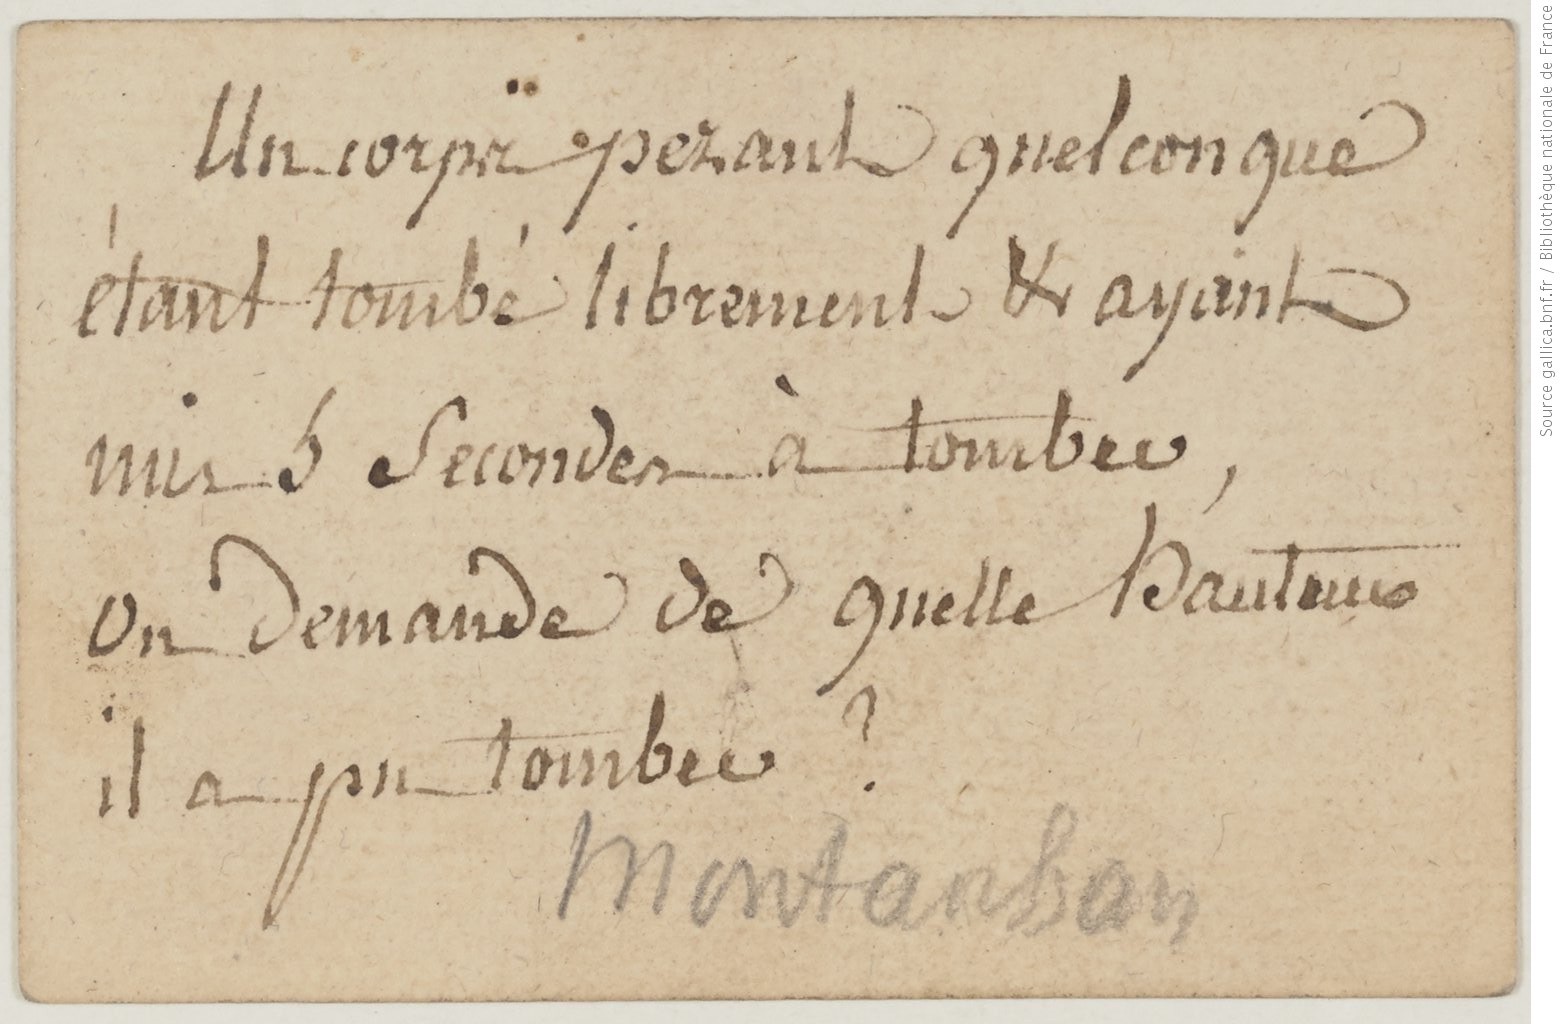 Un corps pezant quelconque
étant tombé librement & ayant
mis 5 Secondes à tomber,
on demande de quelle hauteur
il a pu tomber ?
Montauban
Source gallica.bnf.fr / Bibliothèque nationale de France